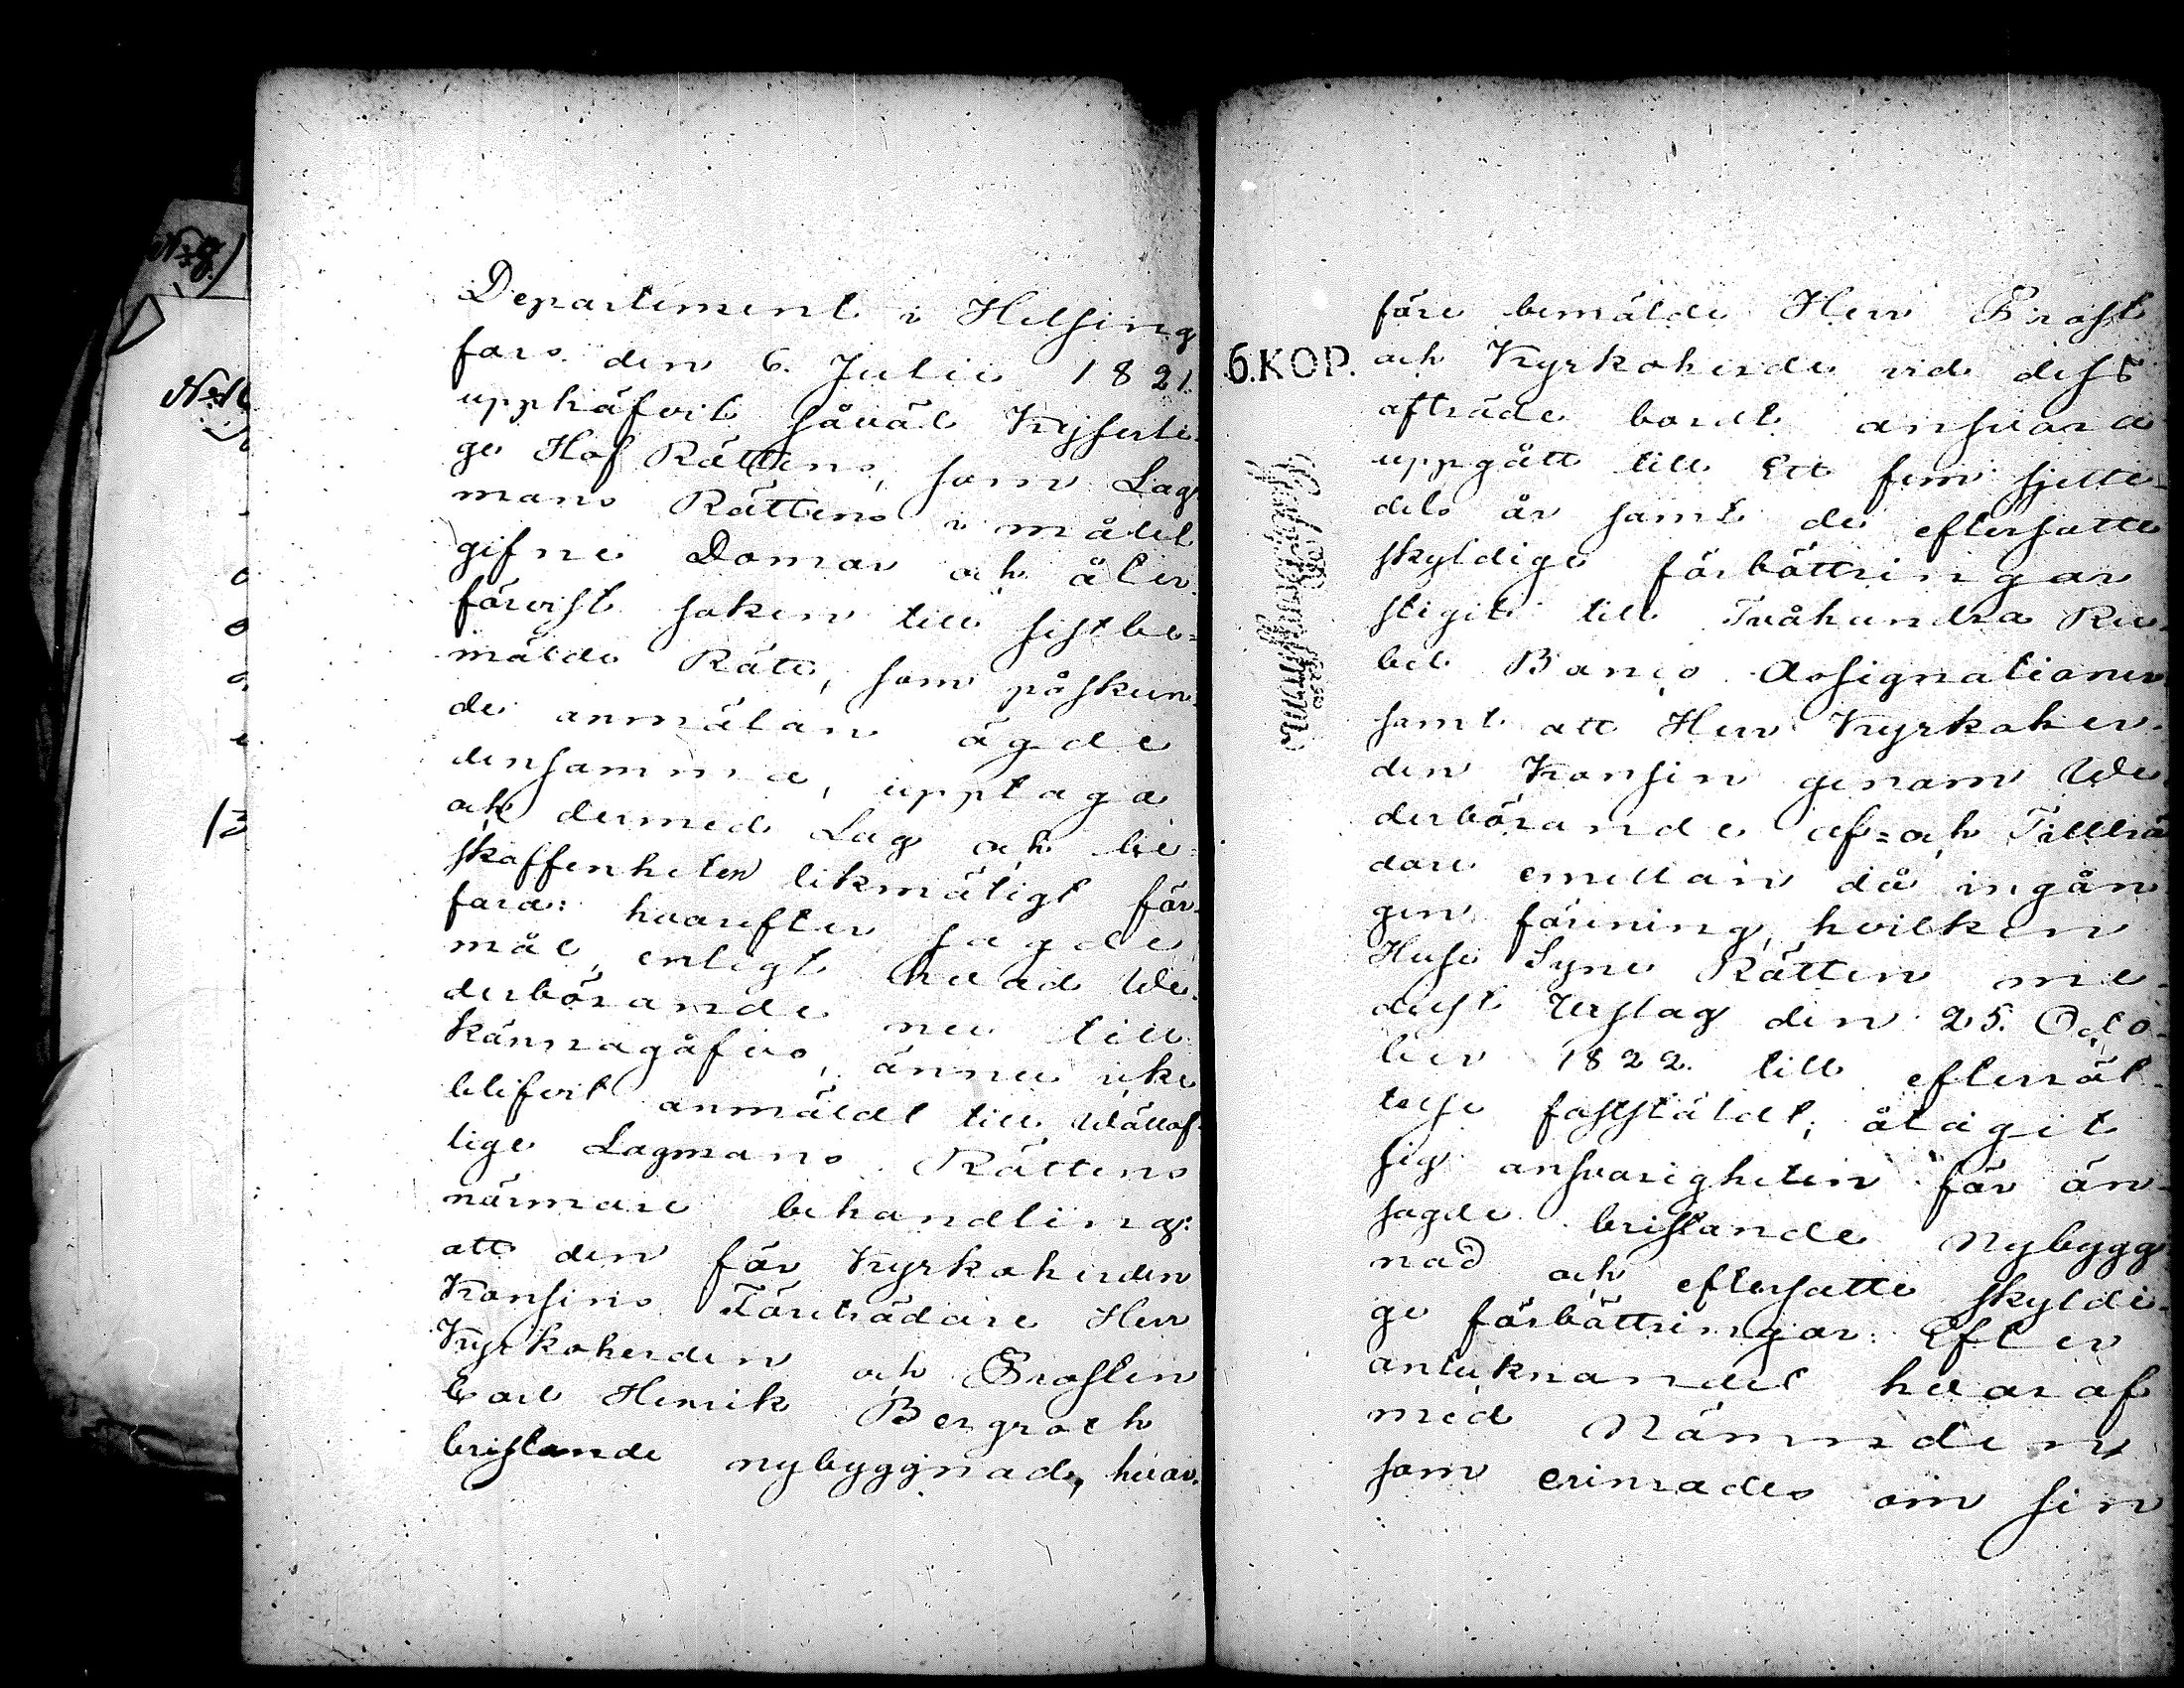 Departement i Helsing
fors den 6. Julii 1821.
upphäfvit såväl Kejserli-
ge Hof Rättens, som Lag
mans Rättens i målet
gifne Domar och åter-
förvist saken till sistbe-
mälde Rätt, som påskun-
de anmälan ägde
densamma, upptaga
och dermed Lag och be-
skaffenheten likmätigt för-
fara: hvarefter sagde
mål, enligt hvad We-
derbörande nu till
kännagåfvo, ännu icke
blifvit anmäldt till Wällof-
lige Lagmans Rättens
närmare behandling:
att den för Kyrkoherden
Konsins Företrädare Herr
Kyrkoherden och Prosten
Carl Henrik Bergroth
bristande nybyggnad, hvar-
före bemälde Herr Prost
och Kyrkoherde vid dess
afträde bordt ansvara
uppgått till Ett fem sjette-
dels år samt de eftersatte
skyldige förbättringar
stigit till Tvåhundra Ru-
bel Banco Assignationer
samt att Herr Kyrkoher-
den Konsin genom We
derbörande af= och Tillträ
dare emellan då ingån
gen förening, hvilken
Huse Syne Rätten me-
delst Utslag den 25. Octo-
ber 1822. till efterrät-
telse fastställdt, åtagit
sig ansvarigheten för än-
sagde bristande Nybygg
nad och eftersatte skyldi-
ge förbättringar: Efter
antecknandet hvaraf
med Nämnden
som erinrades om sin
6.KOP.